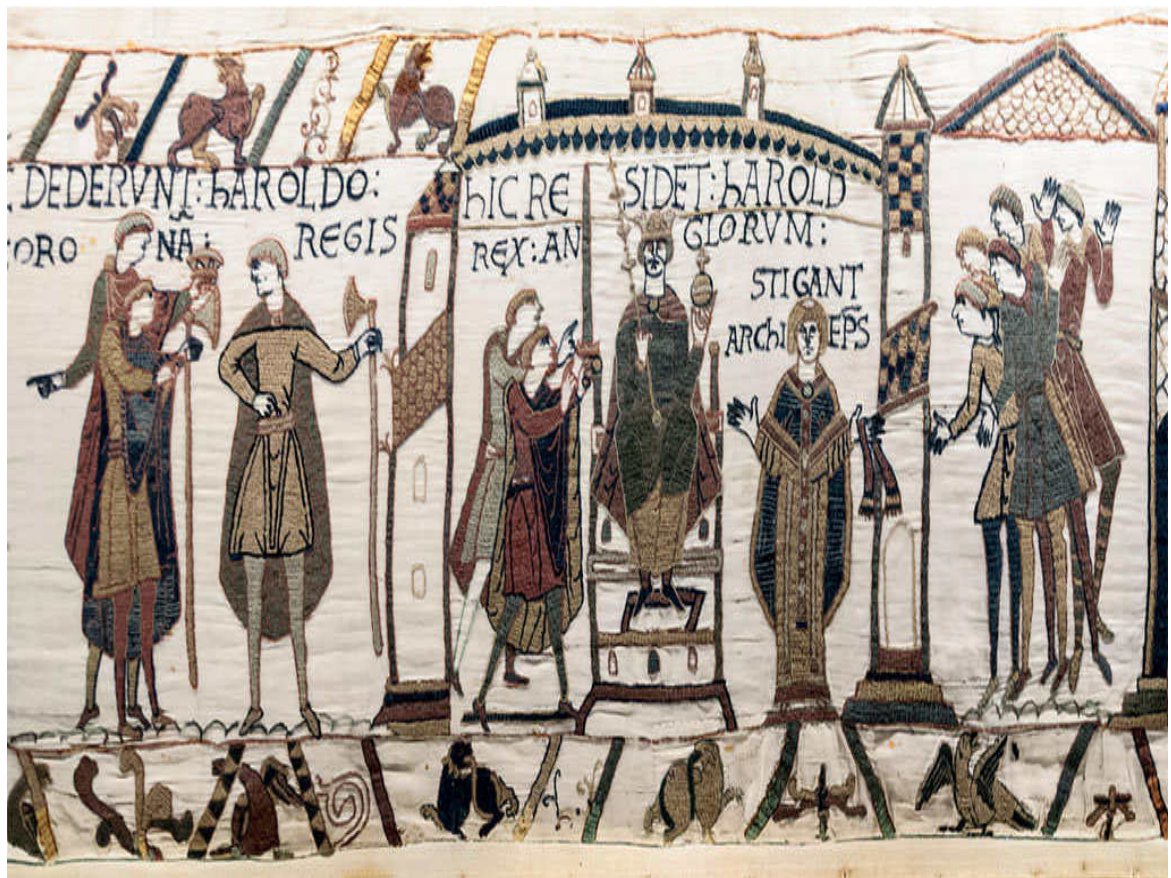 DEDERVNT: hAROLDO:
CORO NÃ: REGIS
hIC RE SIDET: hAROLD
REX: AN GLORVM:
STIGANT
ARChI EP̄S